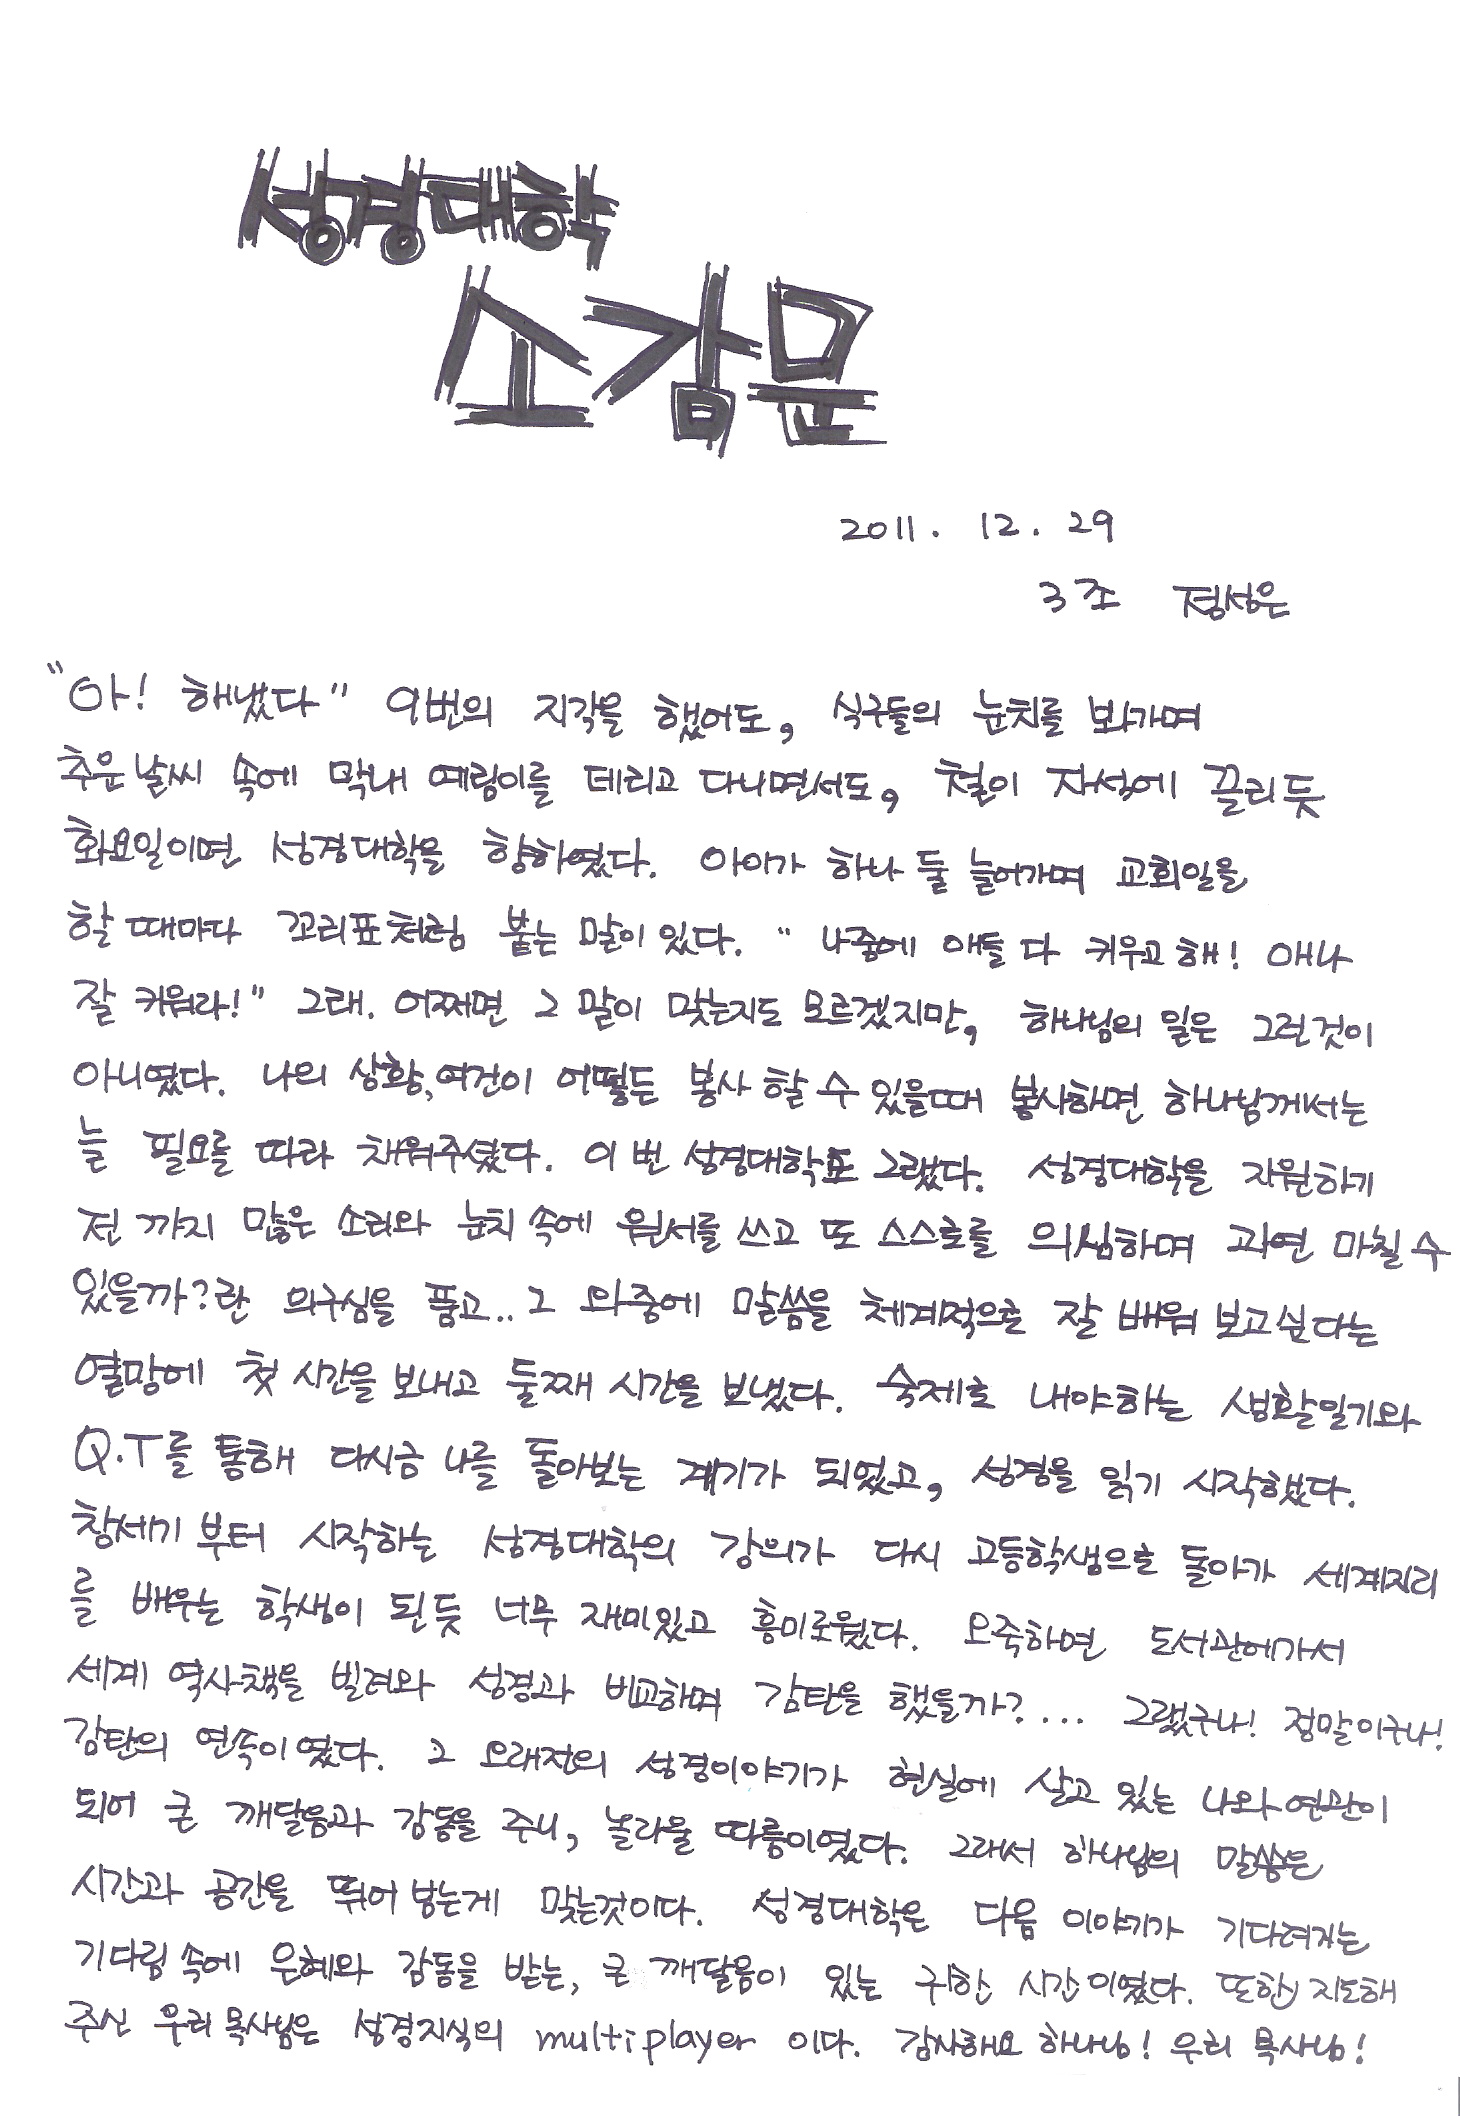 성경대학
소감문
2011. 12. 29
3조 정성은
"아! 해냈다" 9번의 지각을 했어도, 식구들의 눈치를 봐가며
추운 날씨 속에 막내 예랑이를 데리고 다니면서도, 철이 자석에 끌리듯
화요일이면 성경대학을 향하였다. 아이가 하나 둘 늘어가며 교회일을
할 때마다 꼬리표처럼 붙는 말이 있다. "나중에 애들 다 키우고 해! 애나
잘 키워라!" 그래. 어쩌면 그 말이 맞는지도 모르겠지만, 하나님의 일은 그런것이
아니였다. 나의 상황, 여건이 어떻든 봉사 할 수 있을때 봉사하면 하나님께서는
늘 필요를 따라 채워주셨다. 이 번 성경대학도 그랬다. 성경대학을 지원하기
전 까지 많은 소리와 눈치 속에 원서를 쓰고 또 스스로를 의심하며 과연 마칠 수
있을까?란 의구심을 품고.. 그 와중에 말씀을 체계적으로 잘 배워 보고싶다는
열망에 첫 시간을 보내고 둘째 시간을 보냈다. 숙제로 내야하는 생활일기와
Q.T를 통해 다시금 나를 돌아보는 계기가 되었고, 성경을 읽기 시작했다.
창세기 부터 시작하는 성경대학의 강의가 다시 고등학생으로 돌아가 세계지리
를 배우는 학생이 된듯 너무 재미있고 흥미로웠다. 오죽하면 도서관에가서
세계 역사책을 빌려와 성경과 비교하며 감탄을 했을까?... 그랬구나! 정말이구나!
감탄의 연속이였다. 그 오래전의 성경이야기가 현실에 살고 있는 나와 연관이
되어 큰 깨달음과 감동을 주니, 놀라울 따름이였다. 그래서 하나님의 말씀은
시간과 공간을 뛰어 넘는게 맞는것이다. 성경대학은 다음 이야기가 기다려지는
기다림 속에 은혜와 감동을 받는, 큰 깨달음이 있는 귀한 시간이였다. 또한 지도해
주신 우리 목사님은 성경지식의 multiplayer 이다. 감사해요 하나님! 우리 목사님!